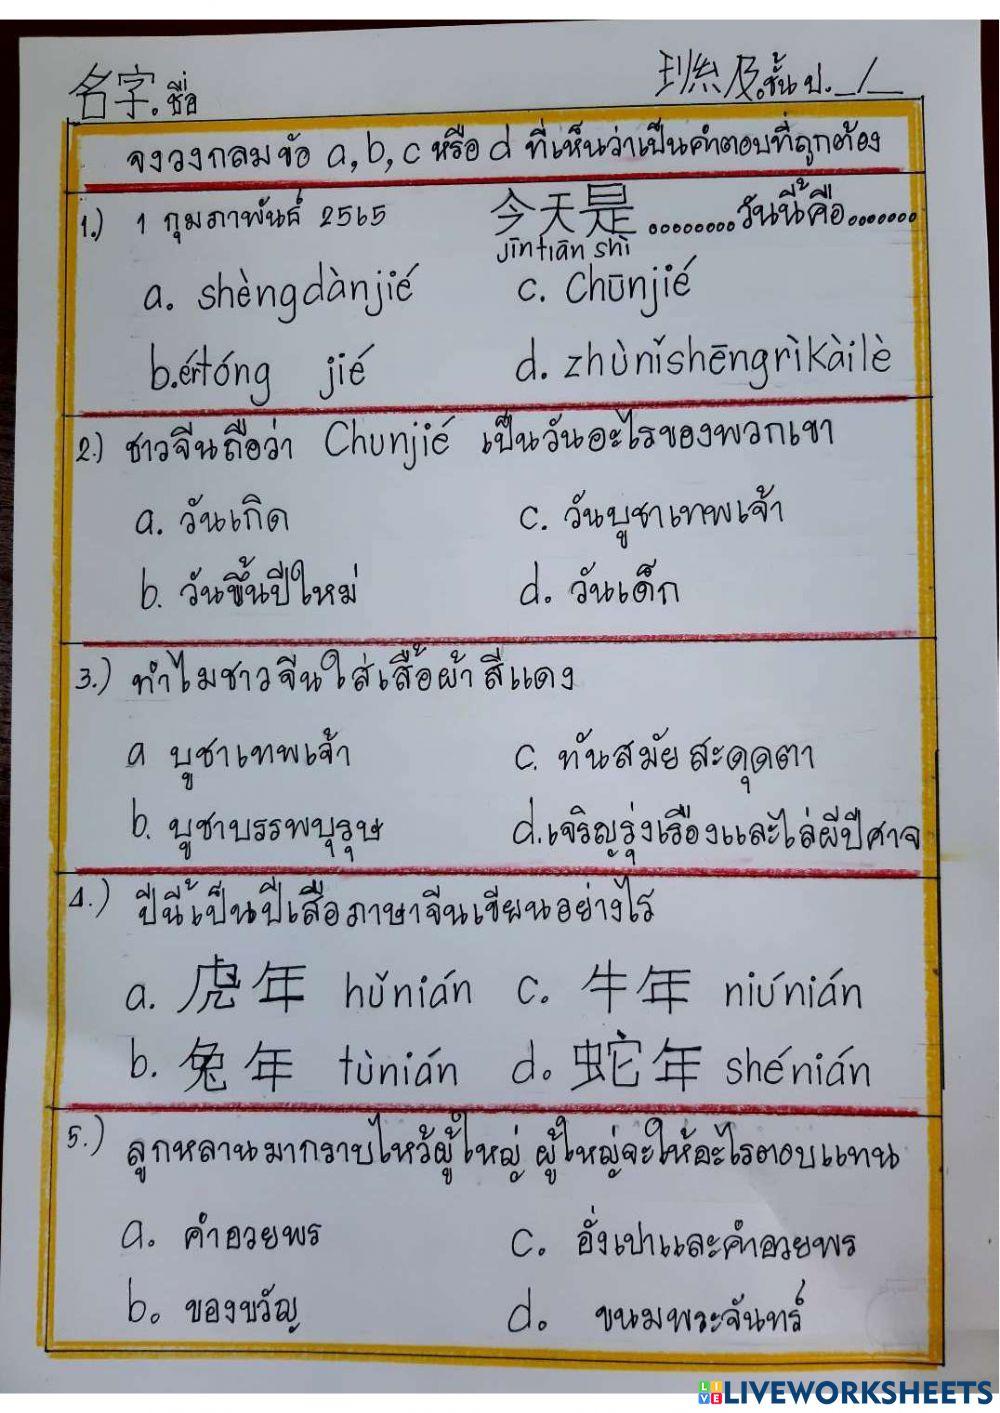 名字.ชื่อ 班级.ชั้น ป._/_
จงวงกลมข้อ a, b, c หรือ d ที่เห็นว่าเป็นคำตอบที่ถูกต้อง
1.) 1 กุมภาพันธ์ 2565 今天是........วันนี้คือ.......
jīntiān shì
a. shèngdànjié c. Chūnjié
b.értóng jié d. zhùnǐshēngrìkàilè
2.) ชาวจีนถือว่า Chunjié เป็นวันอะไรของพวกเขา
a. วันเกิด c. วันบูชาเทพเจ้า
b. วันขึ้นปีใหม่ d. วันเด็ก
3.) ทำไมชาวจีนใส่เสื้อผ้าสีแดง
a บูชาเทพเจ้า c. ทันสมัย สะดุดตา
b. บูชาบรรพบุรุษ d.เจริญรุ่งเรืองและไล่ผีปีศาจ
4.) ปีนี้เป็นปีเสือภาษาจีนเขียนอย่างไร
a. 虎年 hǔnián c. 牛年 niúnián
b. 兔年 tùnián d. 蛇年 shénián
5.) ลูกหลานมากราบไหว้ผู้ใหญ่ ผู้ใหญ่จะให้อะไรตอบแทน
a. คำอวยพร c. อั่งเปาและคำอวยพร
b. ของขวัญ d. ขนมพระจันทร์
LIVEWORKSHEETS